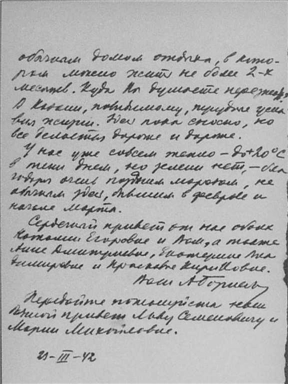 обычным домом отдыха, в кото-
ром можно жить не более 2-х
месяцев. Куда Вы думаете переезжать?
В Казани, по-видимому, трудные усло-
вия жизни. Здесь пока сносно, но
все делается дороже и дороже.
У нас уже совсем тепло – до +20°С
в тени днем, но зелени нет –
годаря очень поздним морозам, не
обычным здесь, бывшим в феврале и
начале марта.
Сердечный привет от нас обоих
Наталии Егоровне и Вам, а также
Анне Дмитриевне, Екатерине Вла-
димировне и Прасковье Кирилловне.
Ваш А.
Передайте пожалуйста наш
привет Льву Семеновичу и
Марии Михайловне.
21-III-42